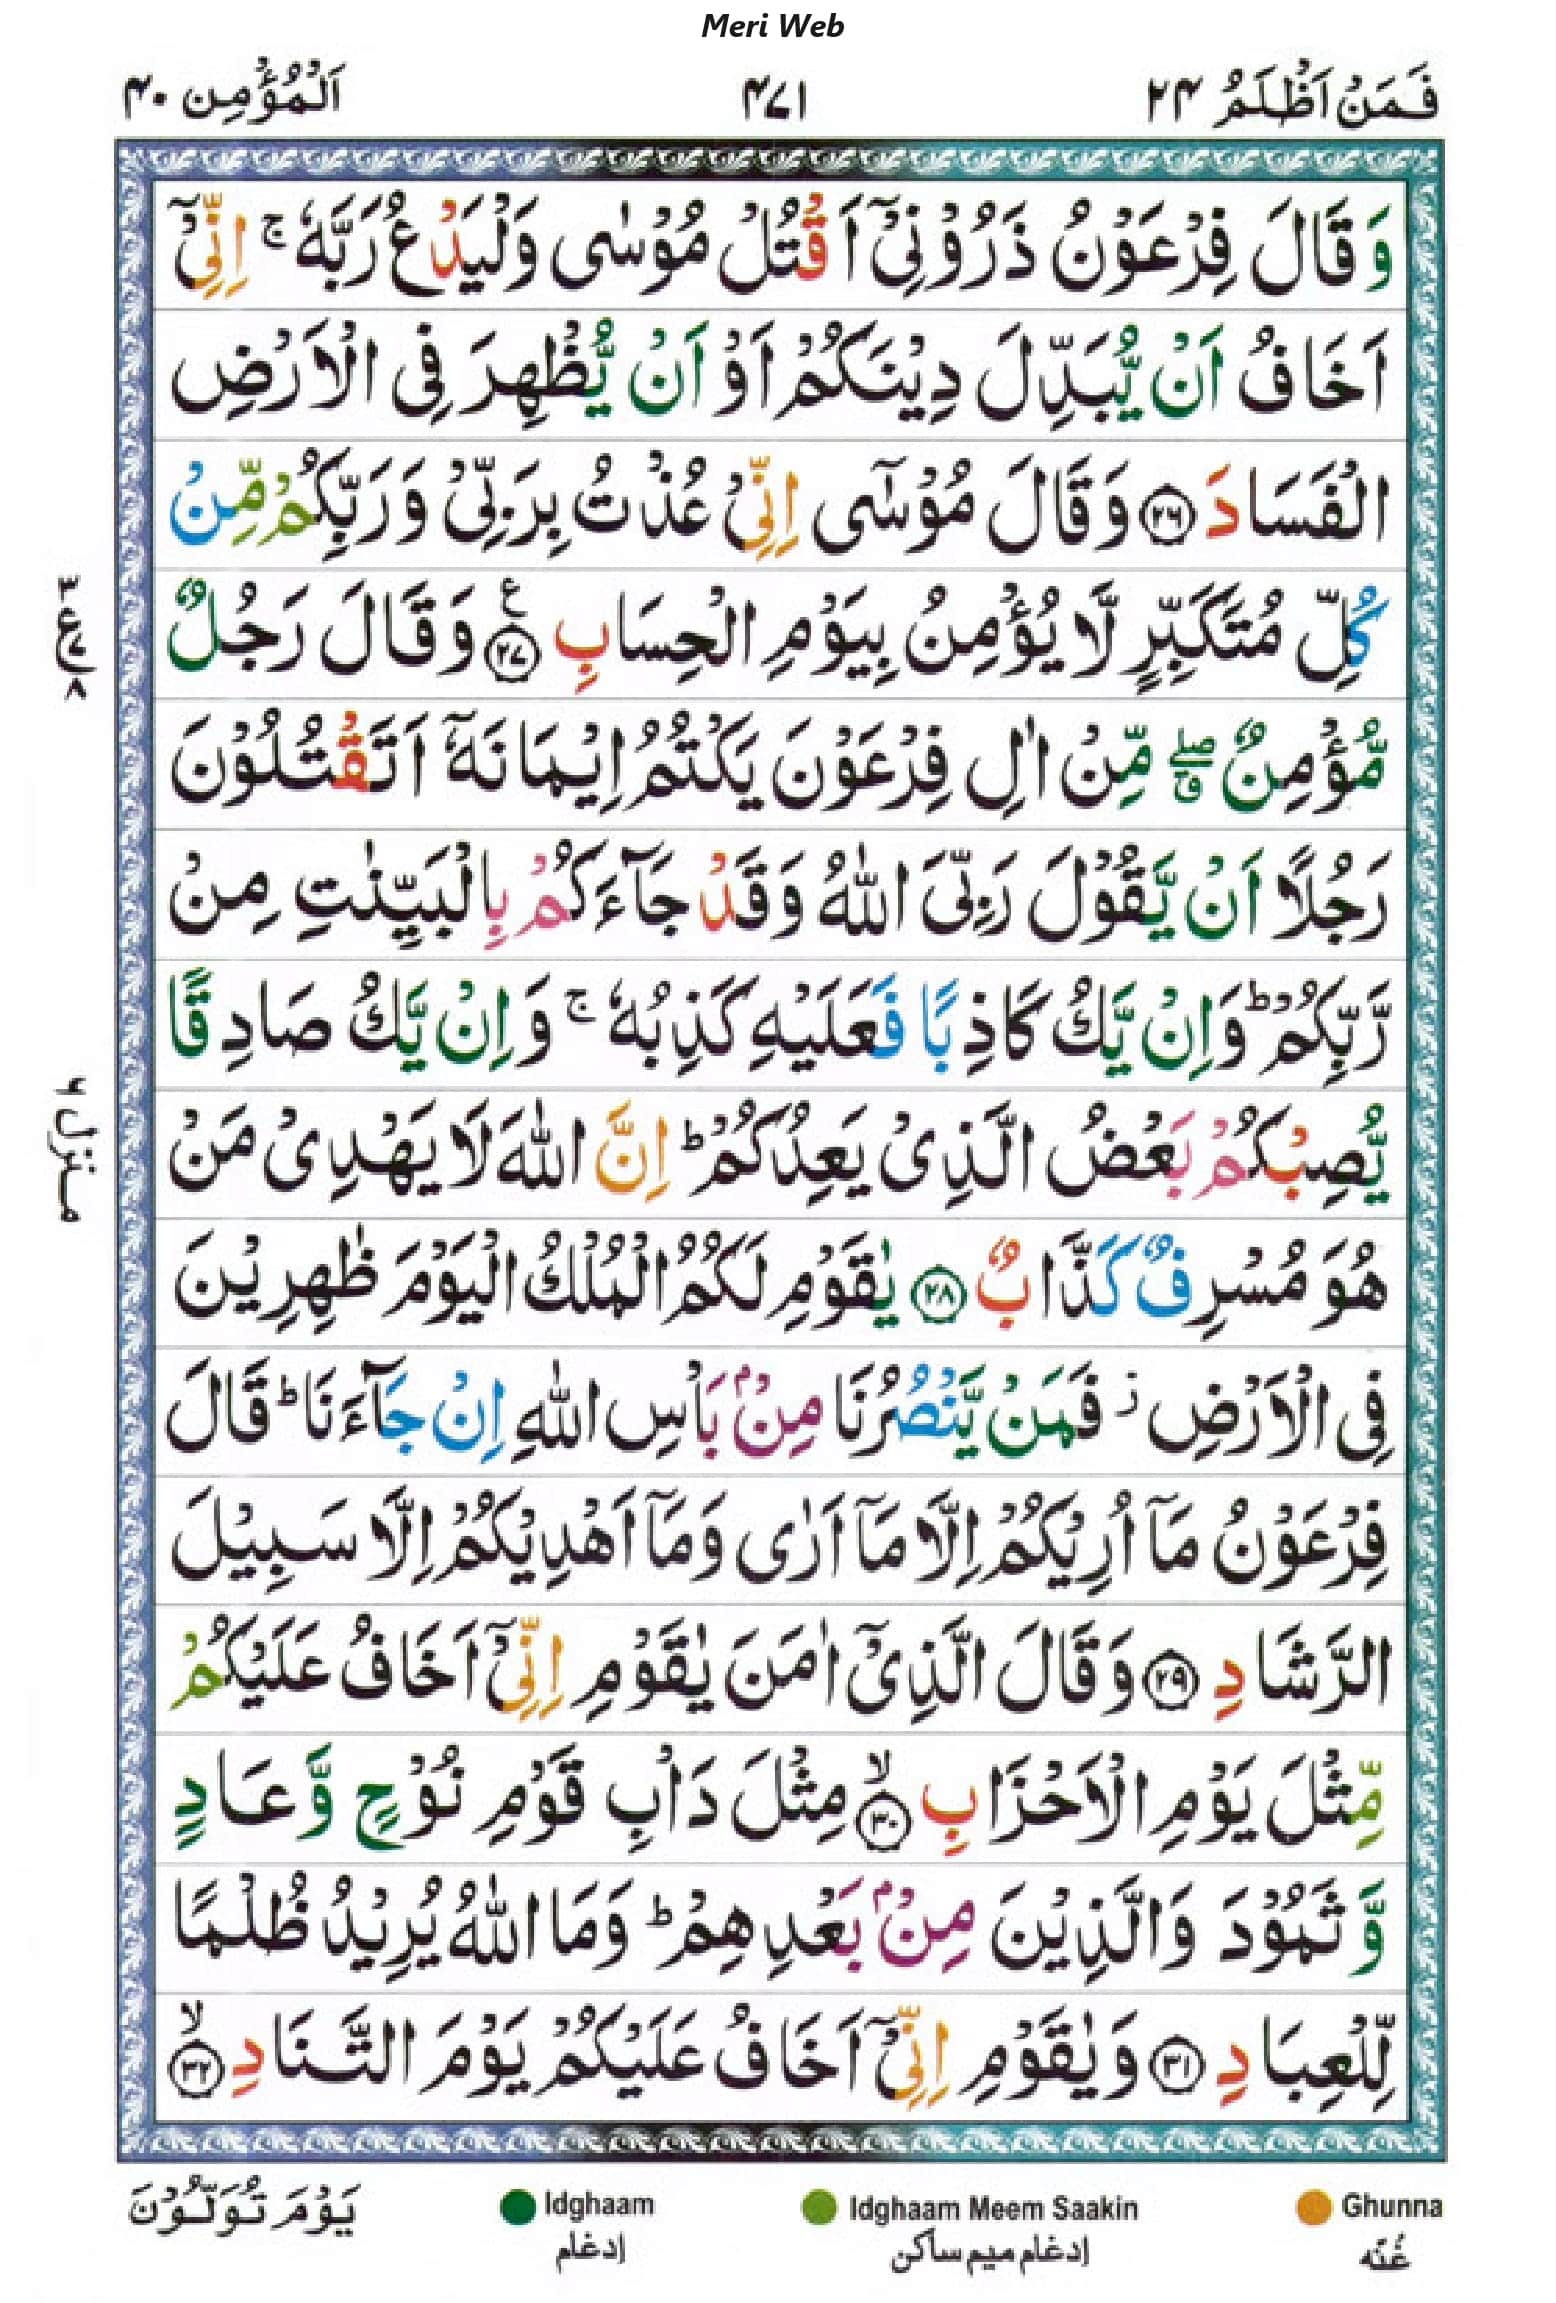 Meri Web
فَمَنْ اَظْلَمُ ۲۴
۴۷۱
اَلْمُؤْمِن ۴۰
وَقَالَ فِرْعَوْنُ ذَرُوْنِیْۤ اَقْتُلْ مُوْسٰی وَلْیَدْعُ رَبَّهٗ ۚ اِنِّیْۤ
اَخَافُ اَنْ یُّبَدِّلَ دِیْنَكُمْ اَوْ اَنْ یُّظْهِرَ فِی الْاَرْضِ
الْفَسَادَ ﴿۲۶﴾ وَقَالَ مُوْسٰۤی اِنِّیْ عُذْتُ بِرَبِّیْ وَرَبِّكُمْ مِّنْ
كُلِّ مُتَكَبِّرٍ لَّا یُؤْمِنُ بِیَوْمِ الْحِسَابِ ﴿۲۷﴾ ع وَقَالَ رَجُلٌ
مُّؤْمِنٌ ۖۗ مِّنْ اٰلِ فِرْعَوْنَ یَكْتُمُ اِیْمَانَهٗۤ اَتَقْتُلُوْنَ
رَجُلًا اَنْ یَّقُوْلَ رَبِّیَ اللّٰهُ وَقَدْ جَآءَكُمْ بِالْبَیِّنٰتِ مِنْ
رَّبِّكُمْ ؕ وَاِنْ یَّكُ كَاذِبًا فَعَلَیْهِ كَذِبُهٗ ۚ وَاِنْ یَّكُ صَادِقًا
یُّصِبْكُمْ بَعْضُ الَّذِیْ یَعِدُكُمْ ؕ اِنَّ اللّٰهَ لَا یَهْدِیْ مَنْ
هُوَ مُسْرِفٌ كَذَّابٌ ﴿۲۸﴾ یٰقَوْمِ لَكُمُ الْمُلْكُ الْیَوْمَ ظٰهِرِیْنَ
فِی الْاَرْضِ ؗ فَمَنْ یَّنْصُرُنَا مِنْۢ بَاْسِ اللّٰهِ اِنْ جَآءَنَا ؕ قَالَ
فِرْعَوْنُ مَاۤ اُرِیْكُمْ اِلَّا مَاۤ اَرٰی وَمَاۤ اَهْدِیْكُمْ اِلَّا سَبِیْلَ
الرَّشَادِ ﴿۲۹﴾ وَقَالَ الَّذِیْۤ اٰمَنَ یٰقَوْمِ اِنِّیْۤ اَخَافُ عَلَیْكُمْ
مِّثْلَ یَوْمِ الْاَحْزَابِ ﴿ۙ۳۰﴾ مِثْلَ دَاْبِ قَوْمِ نُوْحٍ وَّعَادٍ
وَّثَمُوْدَ وَالَّذِیْنَ مِنْۢ بَعْدِهِمْ ؕ وَمَا اللّٰهُ یُرِیْدُ ظُلْمًا
لِّلْعِبَادِ ﴿۳۱﴾ وَیٰقَوْمِ اِنِّیْۤ اَخَافُ عَلَیْكُمْ یَوْمَ التَّنَادِ ﴿ۙ۳۲﴾
منزل ۶
یَوْمَ تُوَلُّوْنَ
Idghaam
إدغام
Idghaam Meem Saakin
إدغام ميم ساكن
Ghunna
غُنّه